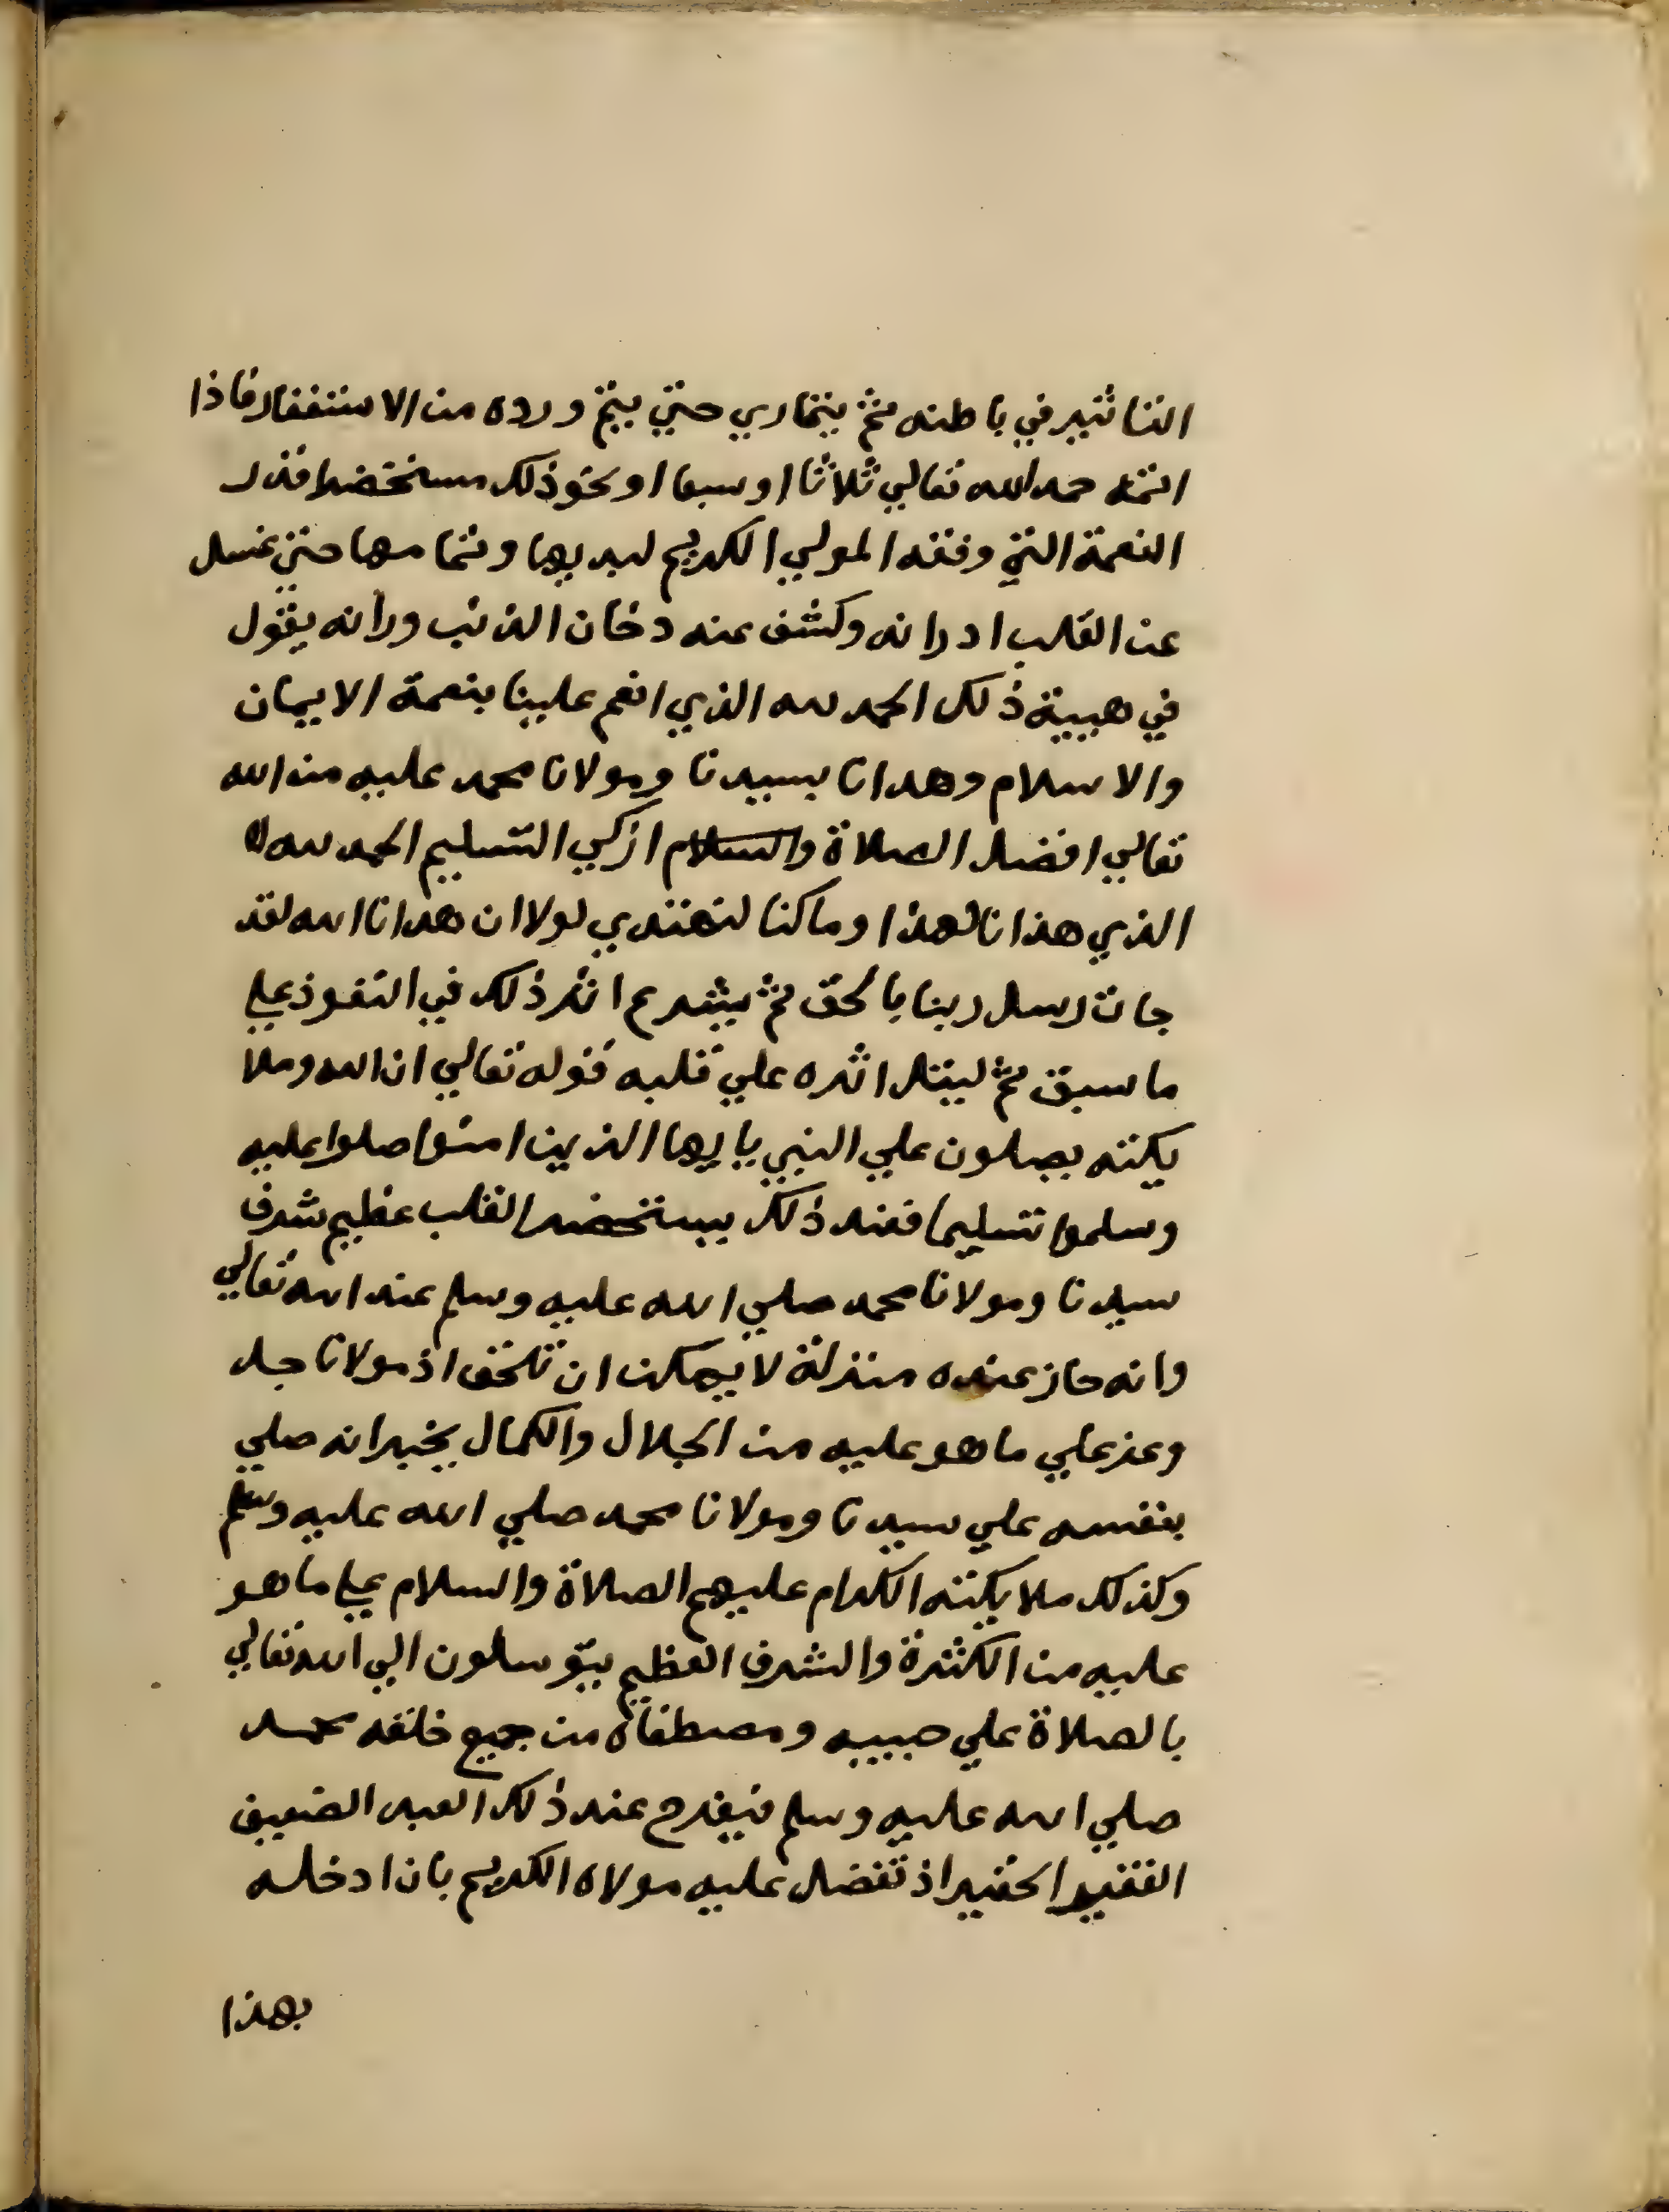 التاثير في باطنه ثم يتمادي حتي يتم ورده من الاستغفار فاذا
اتمه حمد الله تعالي ثلاثا او سبعا او نحو ذلك مستحضرا قدر
النعمة التي وفقه المولي الكريم لبديها وتمامها حتي غسل
عن القلب ادرانه وكشف عنه دخان الذنب ورانه يقول
في هيية ذلك الحمد لله الذي انعم علينا بنعمة الايمان
والاسلام وهدانا بسيدنا ومولانا محمد عليه من الله
تعالي افضل الصلاة والسلام ازكي التسليم الحمد لله
الذي هذانا لهذا وما كنا لنهتدي لولا ان هدانا الله لقد
جات رسل ربنا بالحق ثم يشرع اثر ذلك في التعوذ علي
ما سبق ثم ليتل اثره علي قلبه قوله تعالي ان الله وملا
يكته يصلون علي النبي يايها الذين امنوا صلوا عليه
وسلموا تسليما فعند ذلك يستحضر القلب عظيم شرف
سيدنا ومولانا محمد صلي الله عليه وسلم عند الله تعالي
وانه حاز عنده منزلة لا يمكن ان تلحق اذ مولانا جل
وعز علي ما هو عليه من الجلال والكمال يخبر انه صلي
بنفسه علي سيدنا ومولانا محمد صلي الله عليه وسلم
وكذلك ملايكته الكرام عليهم الصلاة والسلام علي ما هو
عليه من الكثرة والشرف العظيم يتوسلون الي الله تعالي
بالصلاة علي حبيبه ومصطفاه من جميع خلقه محمد
صلي الله عليه وسلم فيفرح عند ذلك العبد الضعيف
الفقير الحقير اذ تفضل عليه مولاه الكريم بان ادخله
بهذا